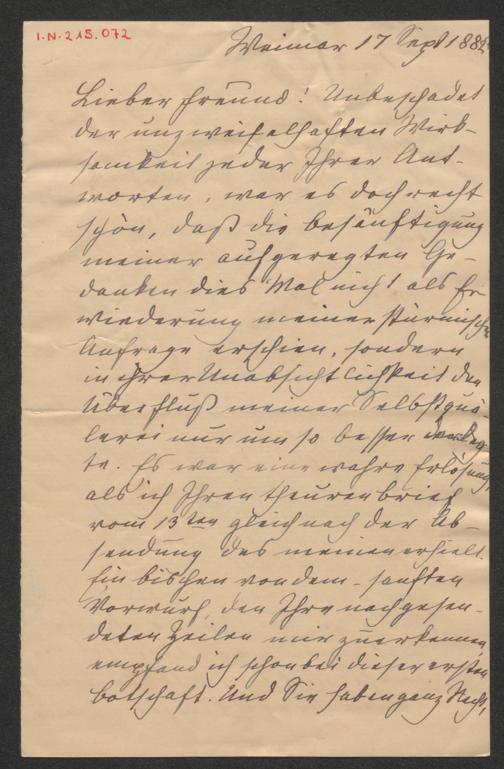 I.N. 215.072
Weimar 17 Sept 188
Lieber Freund! Unbeschadet
der unzweifelhaften Wirk-
samkeit jeder Ihrer Ant-
worten, war es doch recht
schön, daß die Besänftigung
meiner aufgeregten Ge-
danken dies Mal nicht als Er
wiederung meiner stürmischen
Anfrage erschien, sondern
in ihrer Unabsichtlichkeit den
Überfluß meiner Selbstquä
lerei nur um so besser
te. Es war eine wahre Erlösung,
als ich Ihren theuren Brief
vom 13ten gleich nach der Ab-
sendung des meinen erhielt.
Ein bischen von dem sanften
Vorwurf, den Ihre nachgesen-
deten Zeilen mir zuerkennen,
empfand ich schon bei dieser ersten
Botschaft. Und Sie haben ganz Recht,